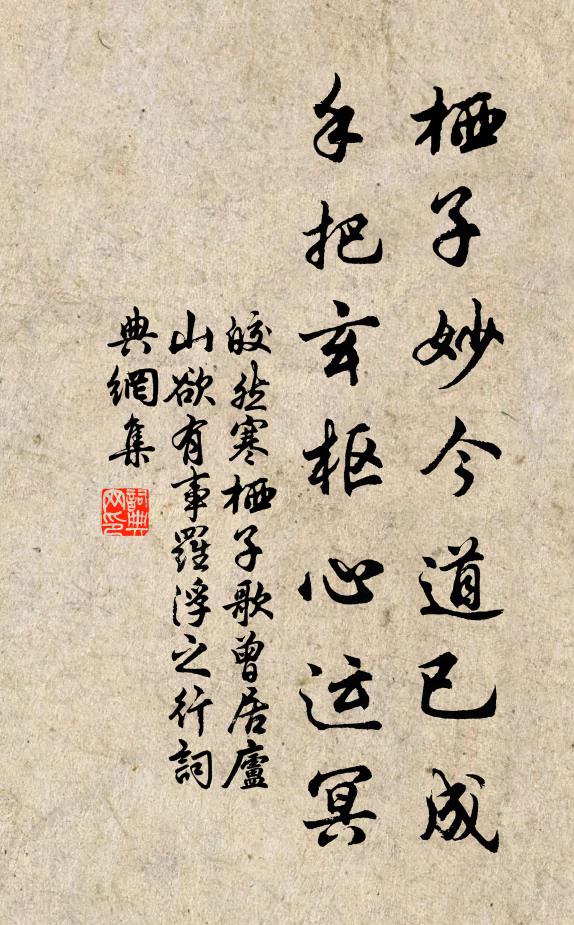 栖子妙今道已成
手把玄枢心运冥
皎然寒栖子歌曾居廬
山欲有事羅浮之行詞
典網集
詞典
网印